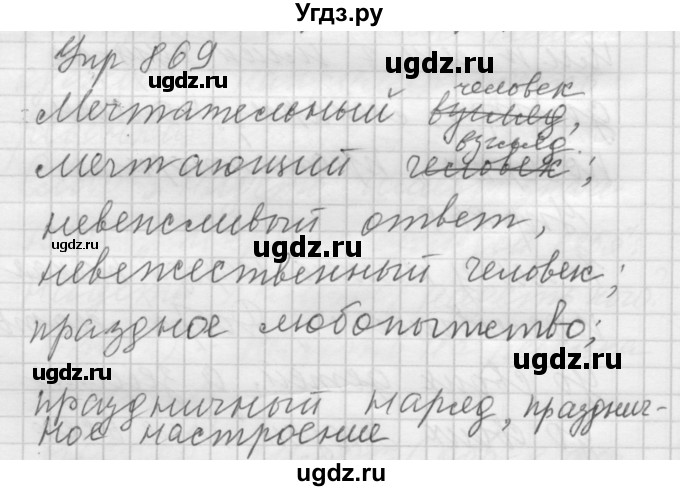 Угдз.ру
Упр 869
ugdz.ru ugdz.ru
человек
Мечтательный взгляд,
взгляд
мечтающий человек;
невежливый ответ,
ugdz.ru ugdz.ru
невежественный человек;
праздное любопытство;
ugdz.ru ugdz.ru
праздничный наряд, празднич-
ное настроение
ugdz.ru